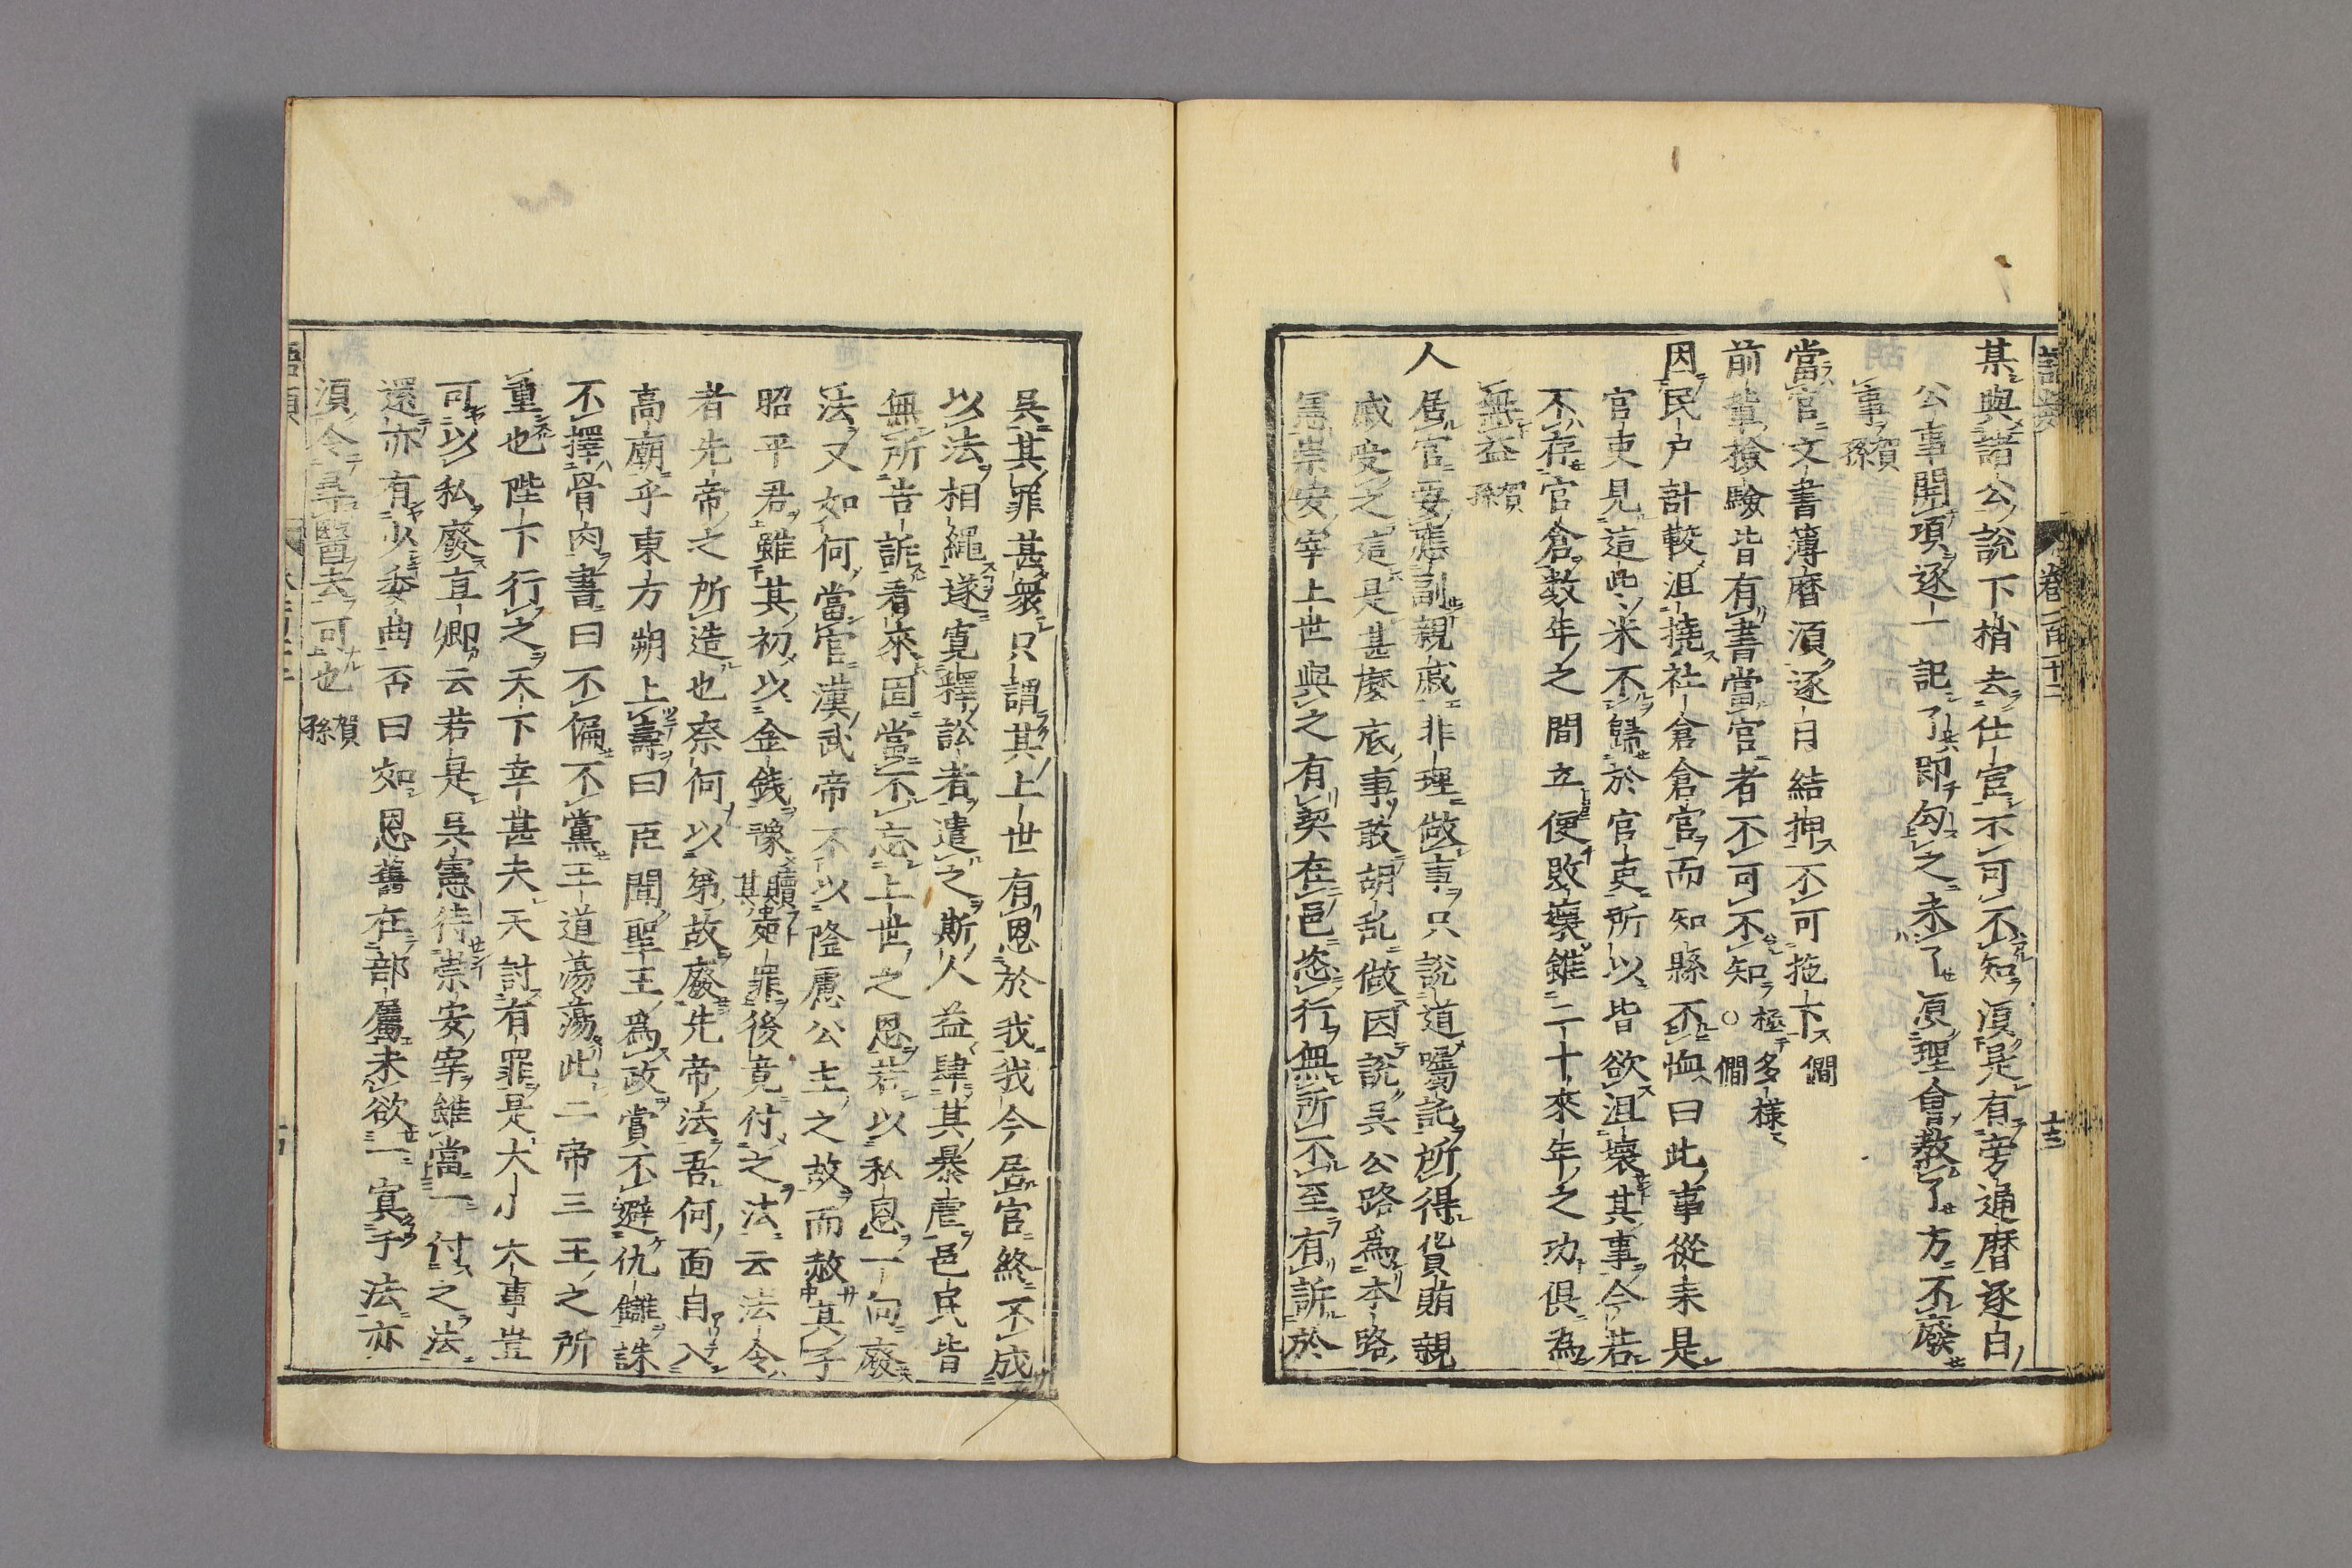 卷一百十二
十三
某與諸公說下梢去仕官不可不知須是有旁通曆逐日
公事開項逐一記了即勾之未了須理會教了方不廢
事賀孫
當官文書薄曆須逐日結押不可拖下僩
前輩撿驗皆有書當官者不可不知○極多樣僩
因民户計較沮撓社倉倉官而知縣不恤曰此事從来是
官吏見這些米不歸於官吏所以皆欲沮壞其事今若
不存官倉数年之間立便敗壞雖二十來年之功俱為
無益賀孫
人居官要應副親戚非理做事只說道囑託所得貨賄親
戚受之這是甚麽底事敢胡乱做因說吳公路爲本路
憲崇安宰上世與之有契在邑恣行無所不至有訴於
吳其罪甚衆只謂其上世有恩於我我今居官終不成
以法相繩遂寛釋訟者遣之斯人益肆其暴虐邑民皆
無所告訴看來固當不忘上世之恩若以私恩一向廢
法又如何當官漢武帝不以隆慮公主之故而赦其子
昭平君雖其初以金錢豫贖其死罪後竟付之法云法令
者先帝之所造也奈何以弟故廢先帝法吾何面目入
高廟乎東方朔上壽曰臣聞聖王爲政賞不避仇讎誅
不擇骨肉書曰不偏不黨王道蕩蕩此二帝三王之所
重也陛下行之天下幸甚夫天討有罪是大小大事豈
可以私廢直卿云若是吳憲待崇安宰雖當一付之法
還亦有少委曲否曰如恩舊在部屬未欲一寘于法亦
須令尋醫去可也賀孫